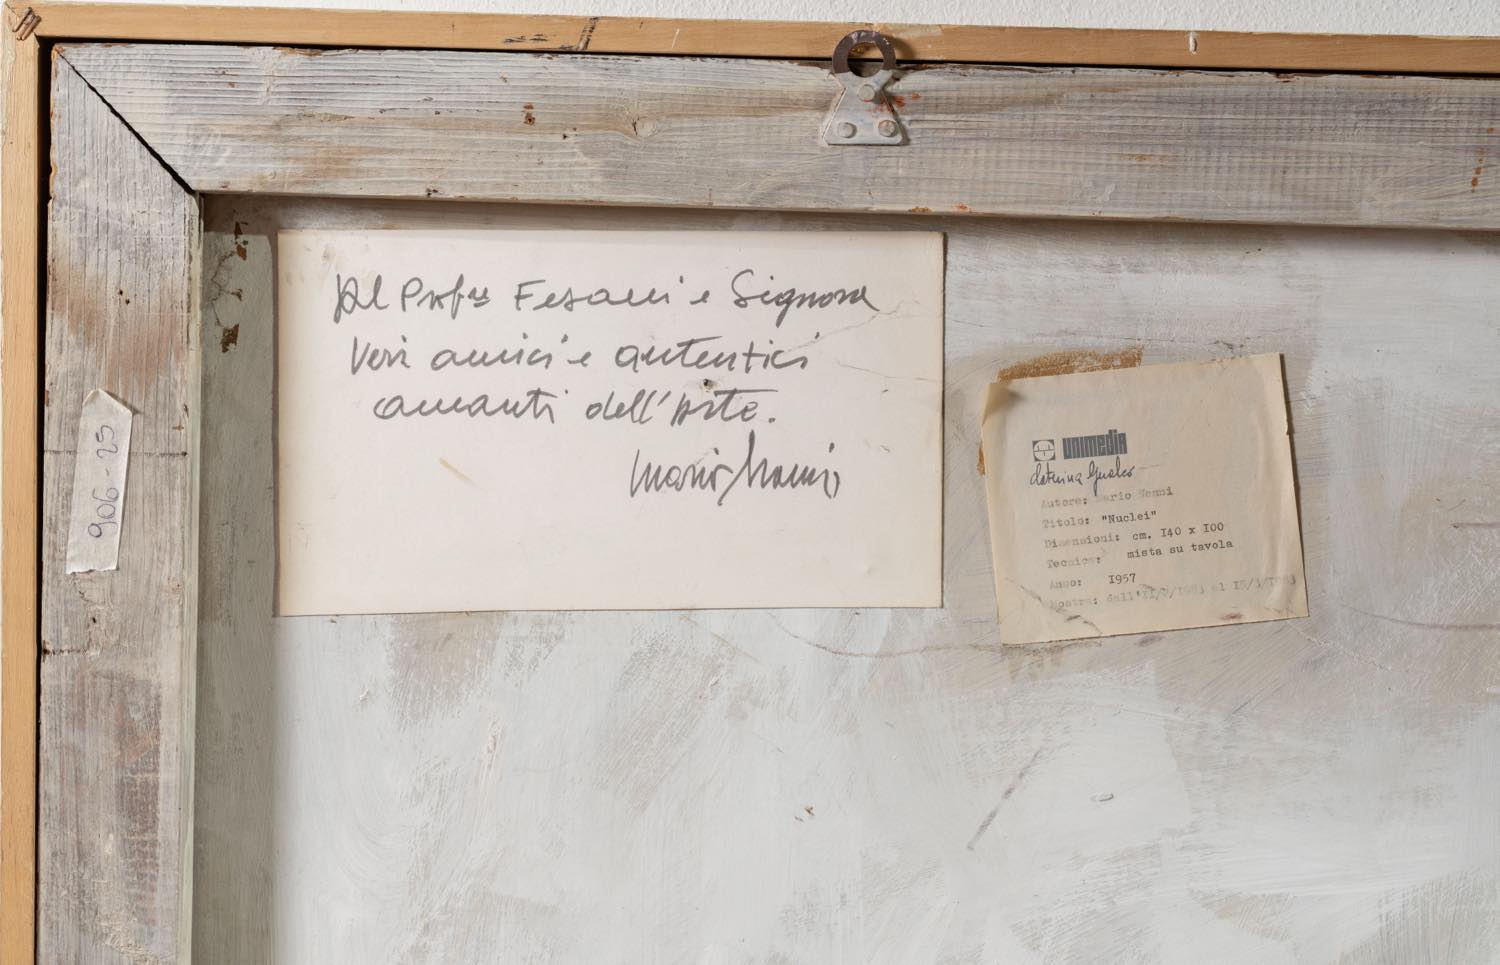 Al Prof.re Fesani e Signora
Veri amici e autentici
amanti dell'Arte.
Mario Nanni
906-25
unimedia
Caterina Gualco
Autore: Mario Nanni
Titolo: "Nuclei"
Dimensioni: cm. I40 x I00
Tecnica: mista su tavola
Anno: I957
Mostra: dall'II/ al I5/3/I983